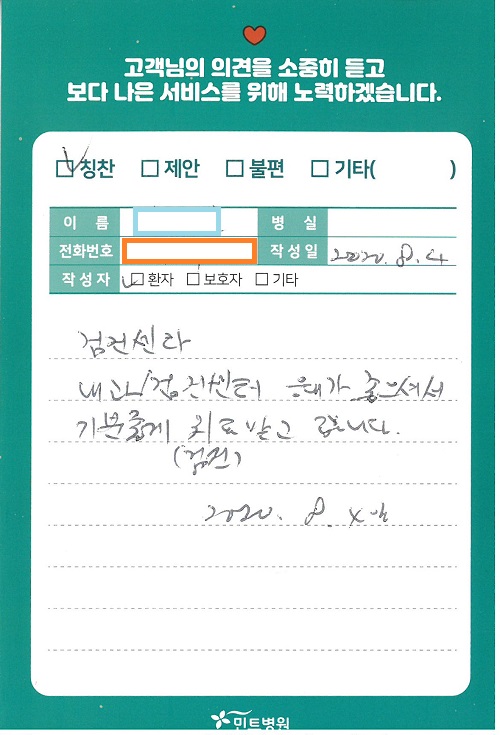 고객님의 의견을 소중히 듣고
보다 나은 서비스를 위해 노력하겠습니다.
칭찬 제안 불편 기타( )
이 름 병 실
전화번호 작성일 2020. 8. 4
작성자 환자 보호자 기타
검진센타
내과/검진센터 응대가 좋으셔서
기분좋게 치료받고 갑니다.
(검진)
2020. 8. 4
민트병원